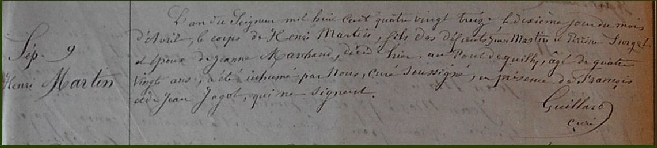 L'an du Seigneur mil huit cent quatre vingt treize le dixième jour du mois
d'Avril, le corps de Henri Martin, fils des défunts Jean Martin et
et époux de Jeanne Marchand, décédé hier, au Pont de , âgé de quatre
vingts ans, a été inhumé par Nous, Curé soussigné, en présence de François
et de Jean Jagot, qui ne signent.
Guillard
curé
Sép. 9
Henri Martin